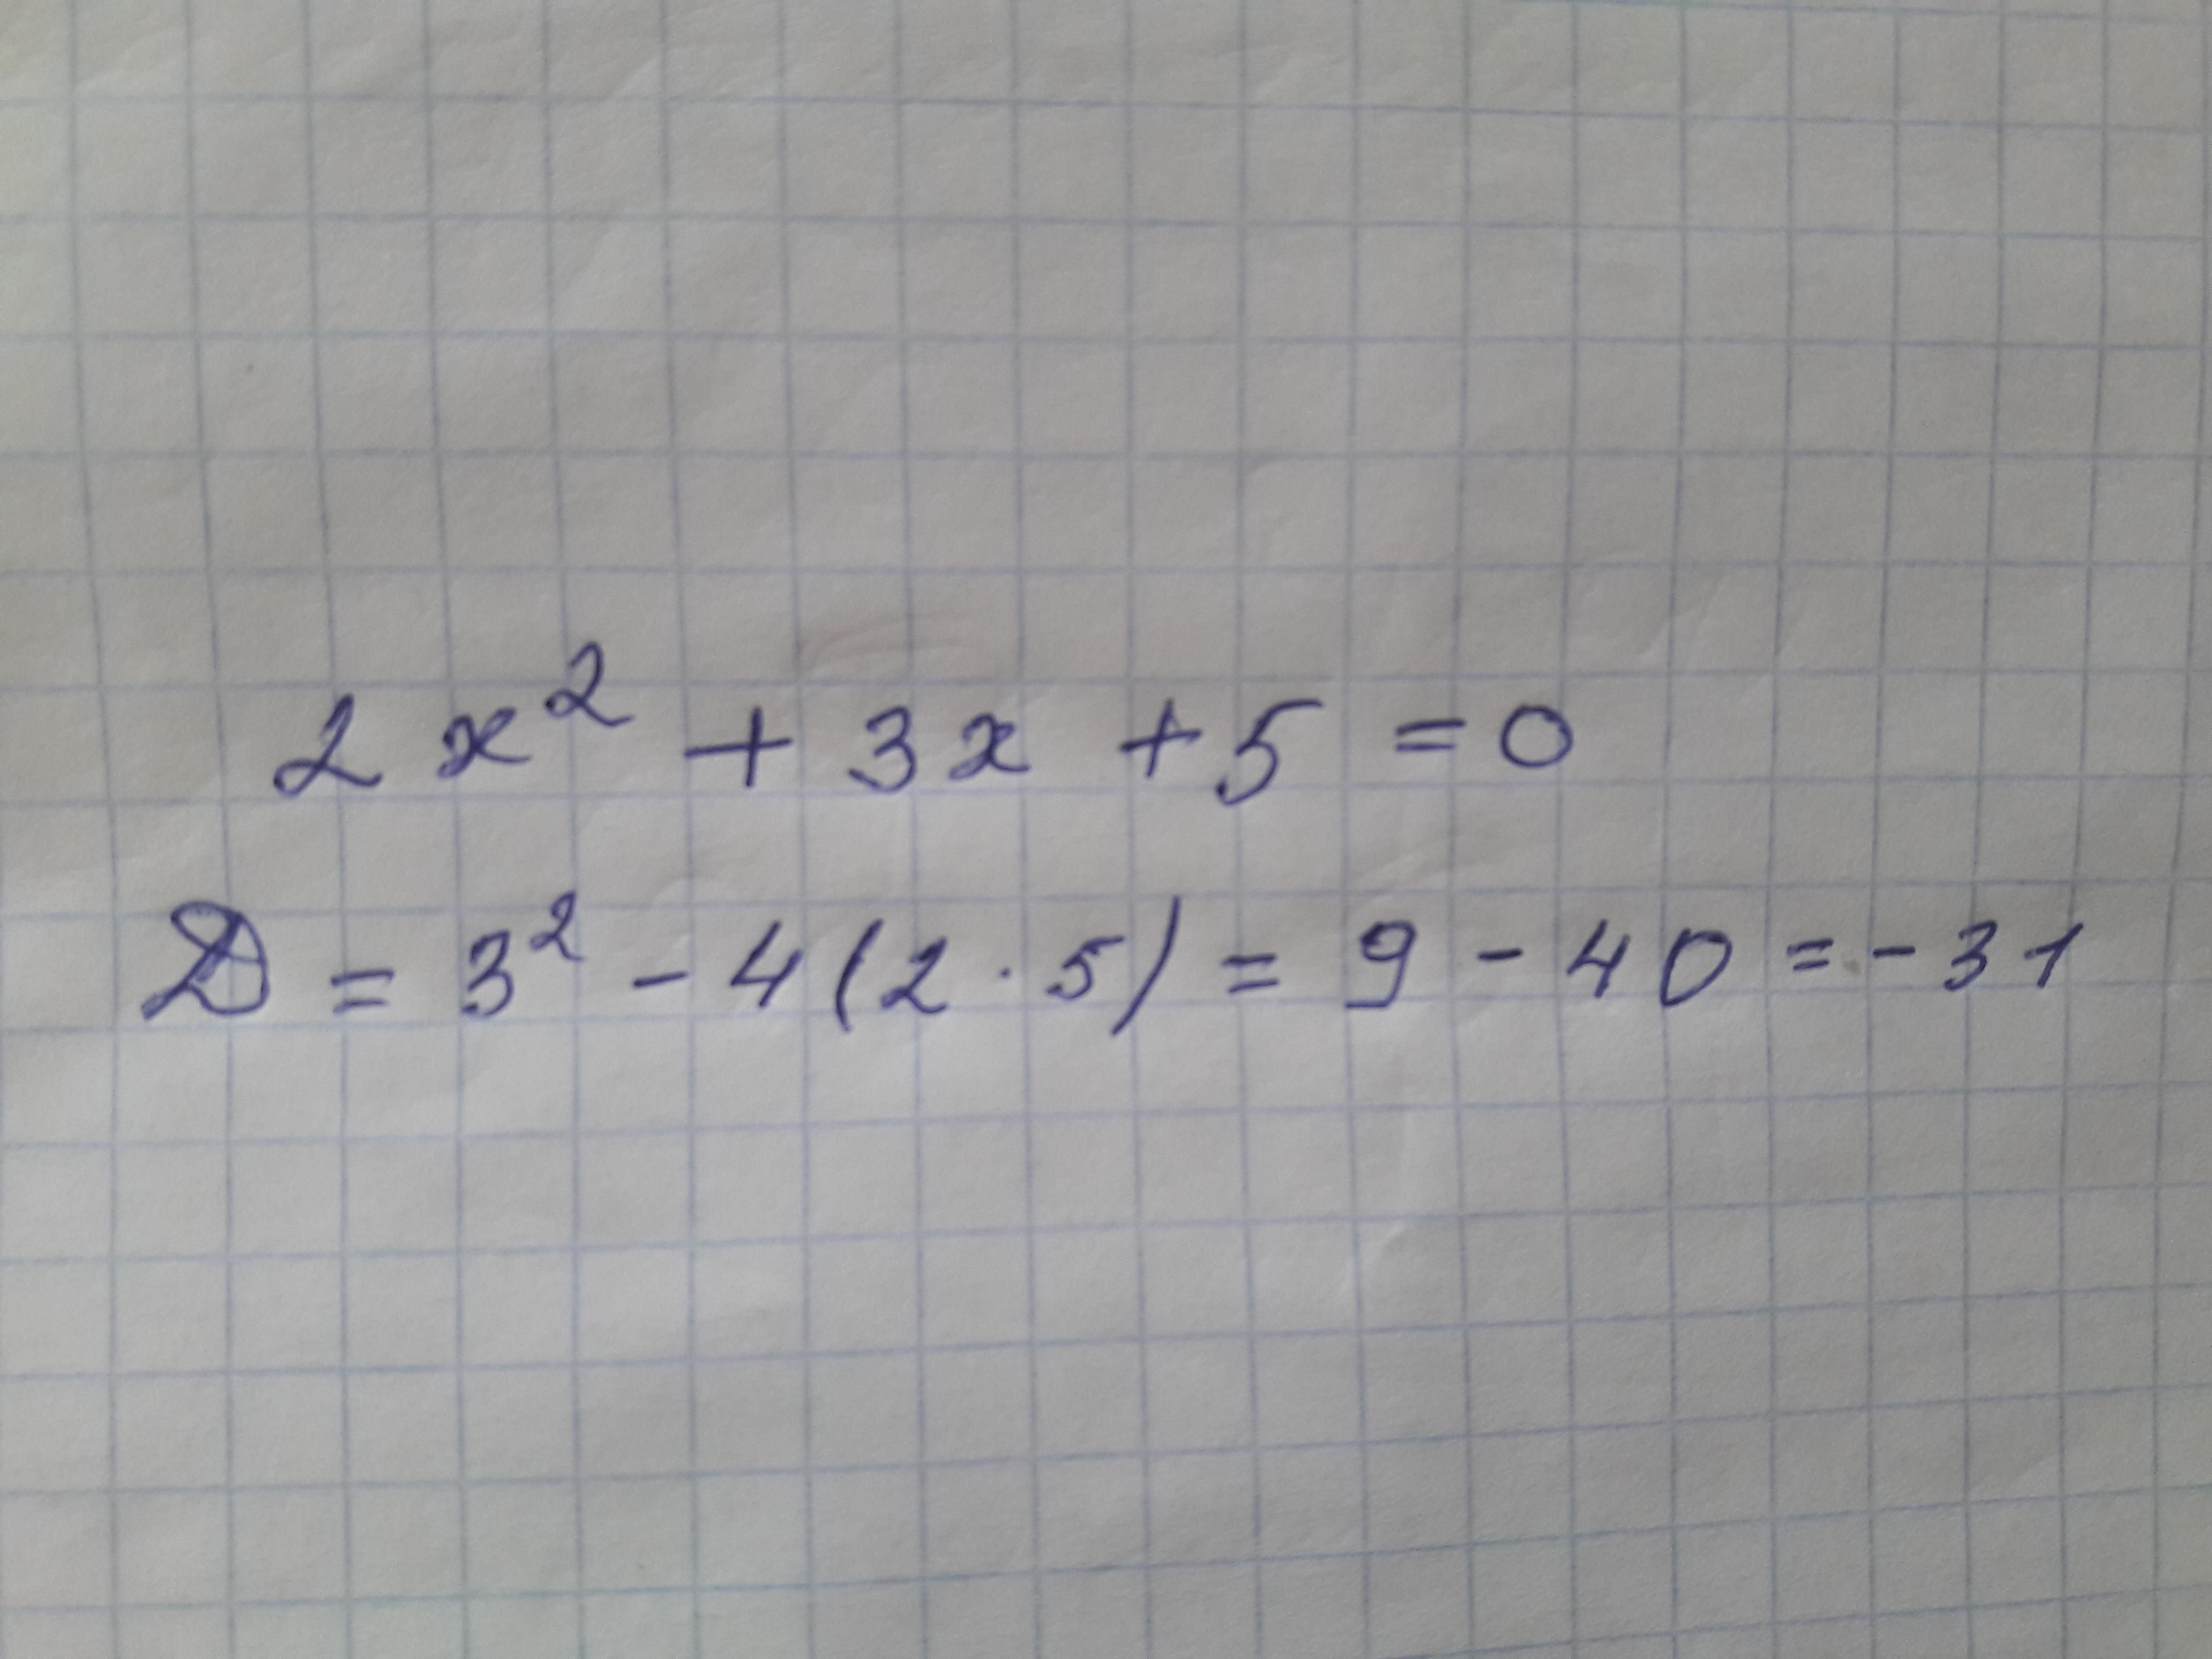 2x² + 3x + 5 = 0
D = 3² - 4(2 · 5) = 9 - 40 = -31